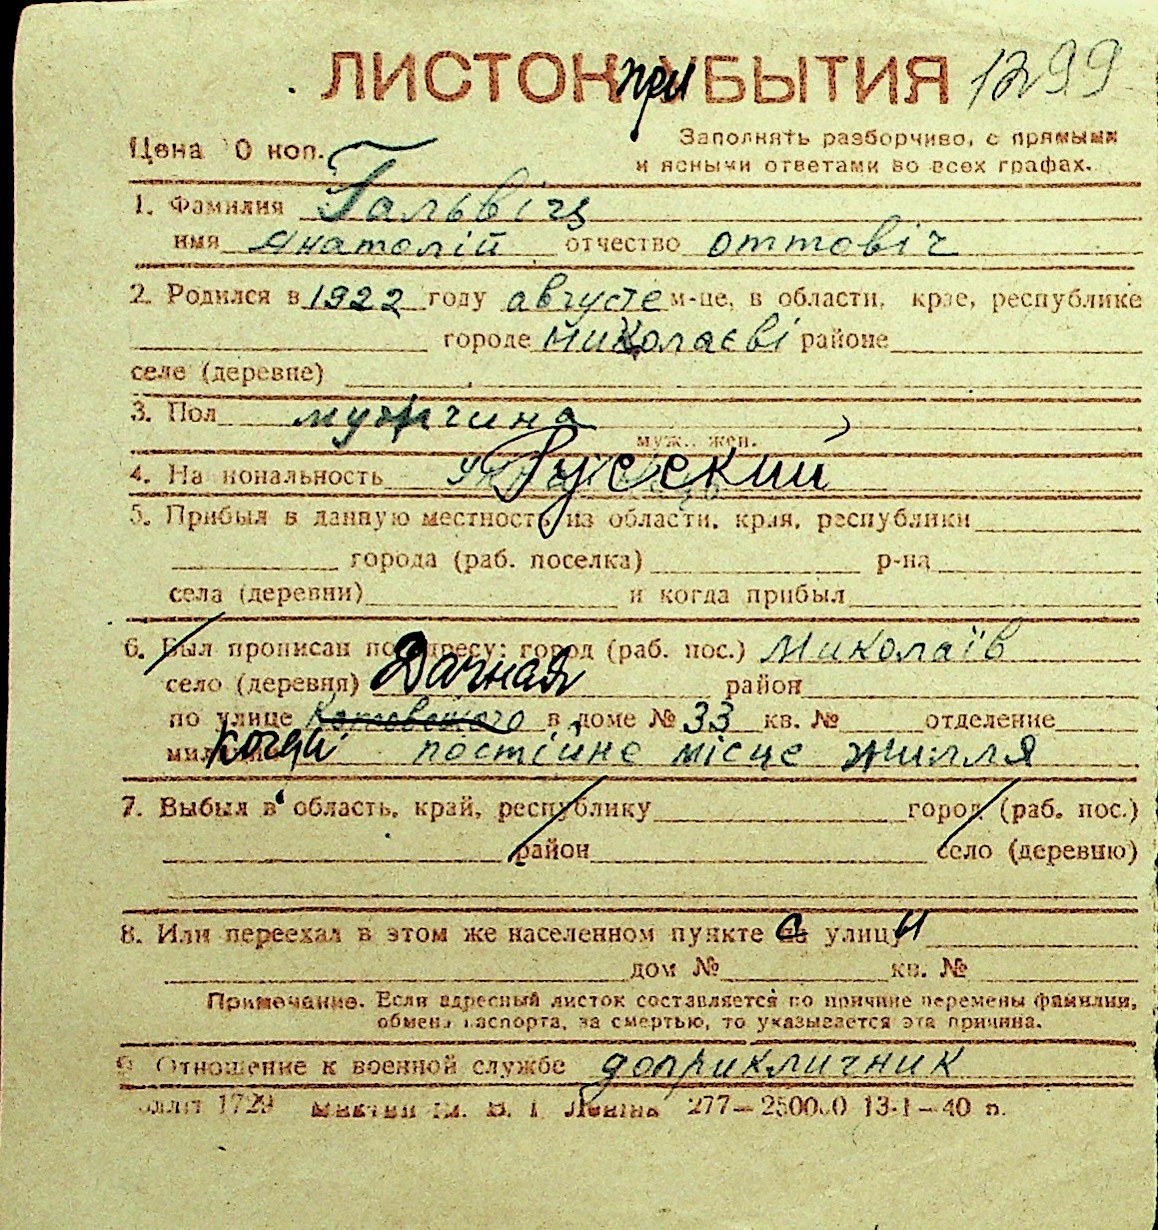 ЛИСТОК при УБЫТИЯ 1299
Цена 10 коп.
Заполнять разборчиво, с прямыми
и ясными ответами во всех графах.
1. Фамилия Гальвіц
имя Анатолій отчество Оттовіч
2. Родился в 1922 году августе м-це, в области, крае, республике
городе Миколаєві районе
селе (деревне)
3. Пол мужчина
муж., жен.
4. Национальность Русский
5. Прибыл в данную местность из области, края, республики
города (раб. поселка) р-на
села (деревни) и когда прибыл
6. Был прописан по адресу: город (раб. пос.) Миколаїв
село (деревня) Дачная район
по улице Котовського в доме № 33 кв. № отделение
милиции когда постійне місце жилля
7. Выбыл в область, край, республику город (раб. пос.)
район село (деревню)
8. Или переехал в этом же населенном пункте с улицы
дом № кв. №
Примечание. Если адресный листок составляется по причине перемены фамилии,
обмена паспорта, за смертью, то указывается эта причина.
9. Отношение к военной службе доприкличник
1729 Ленина 277—250000 13-I—40 п.